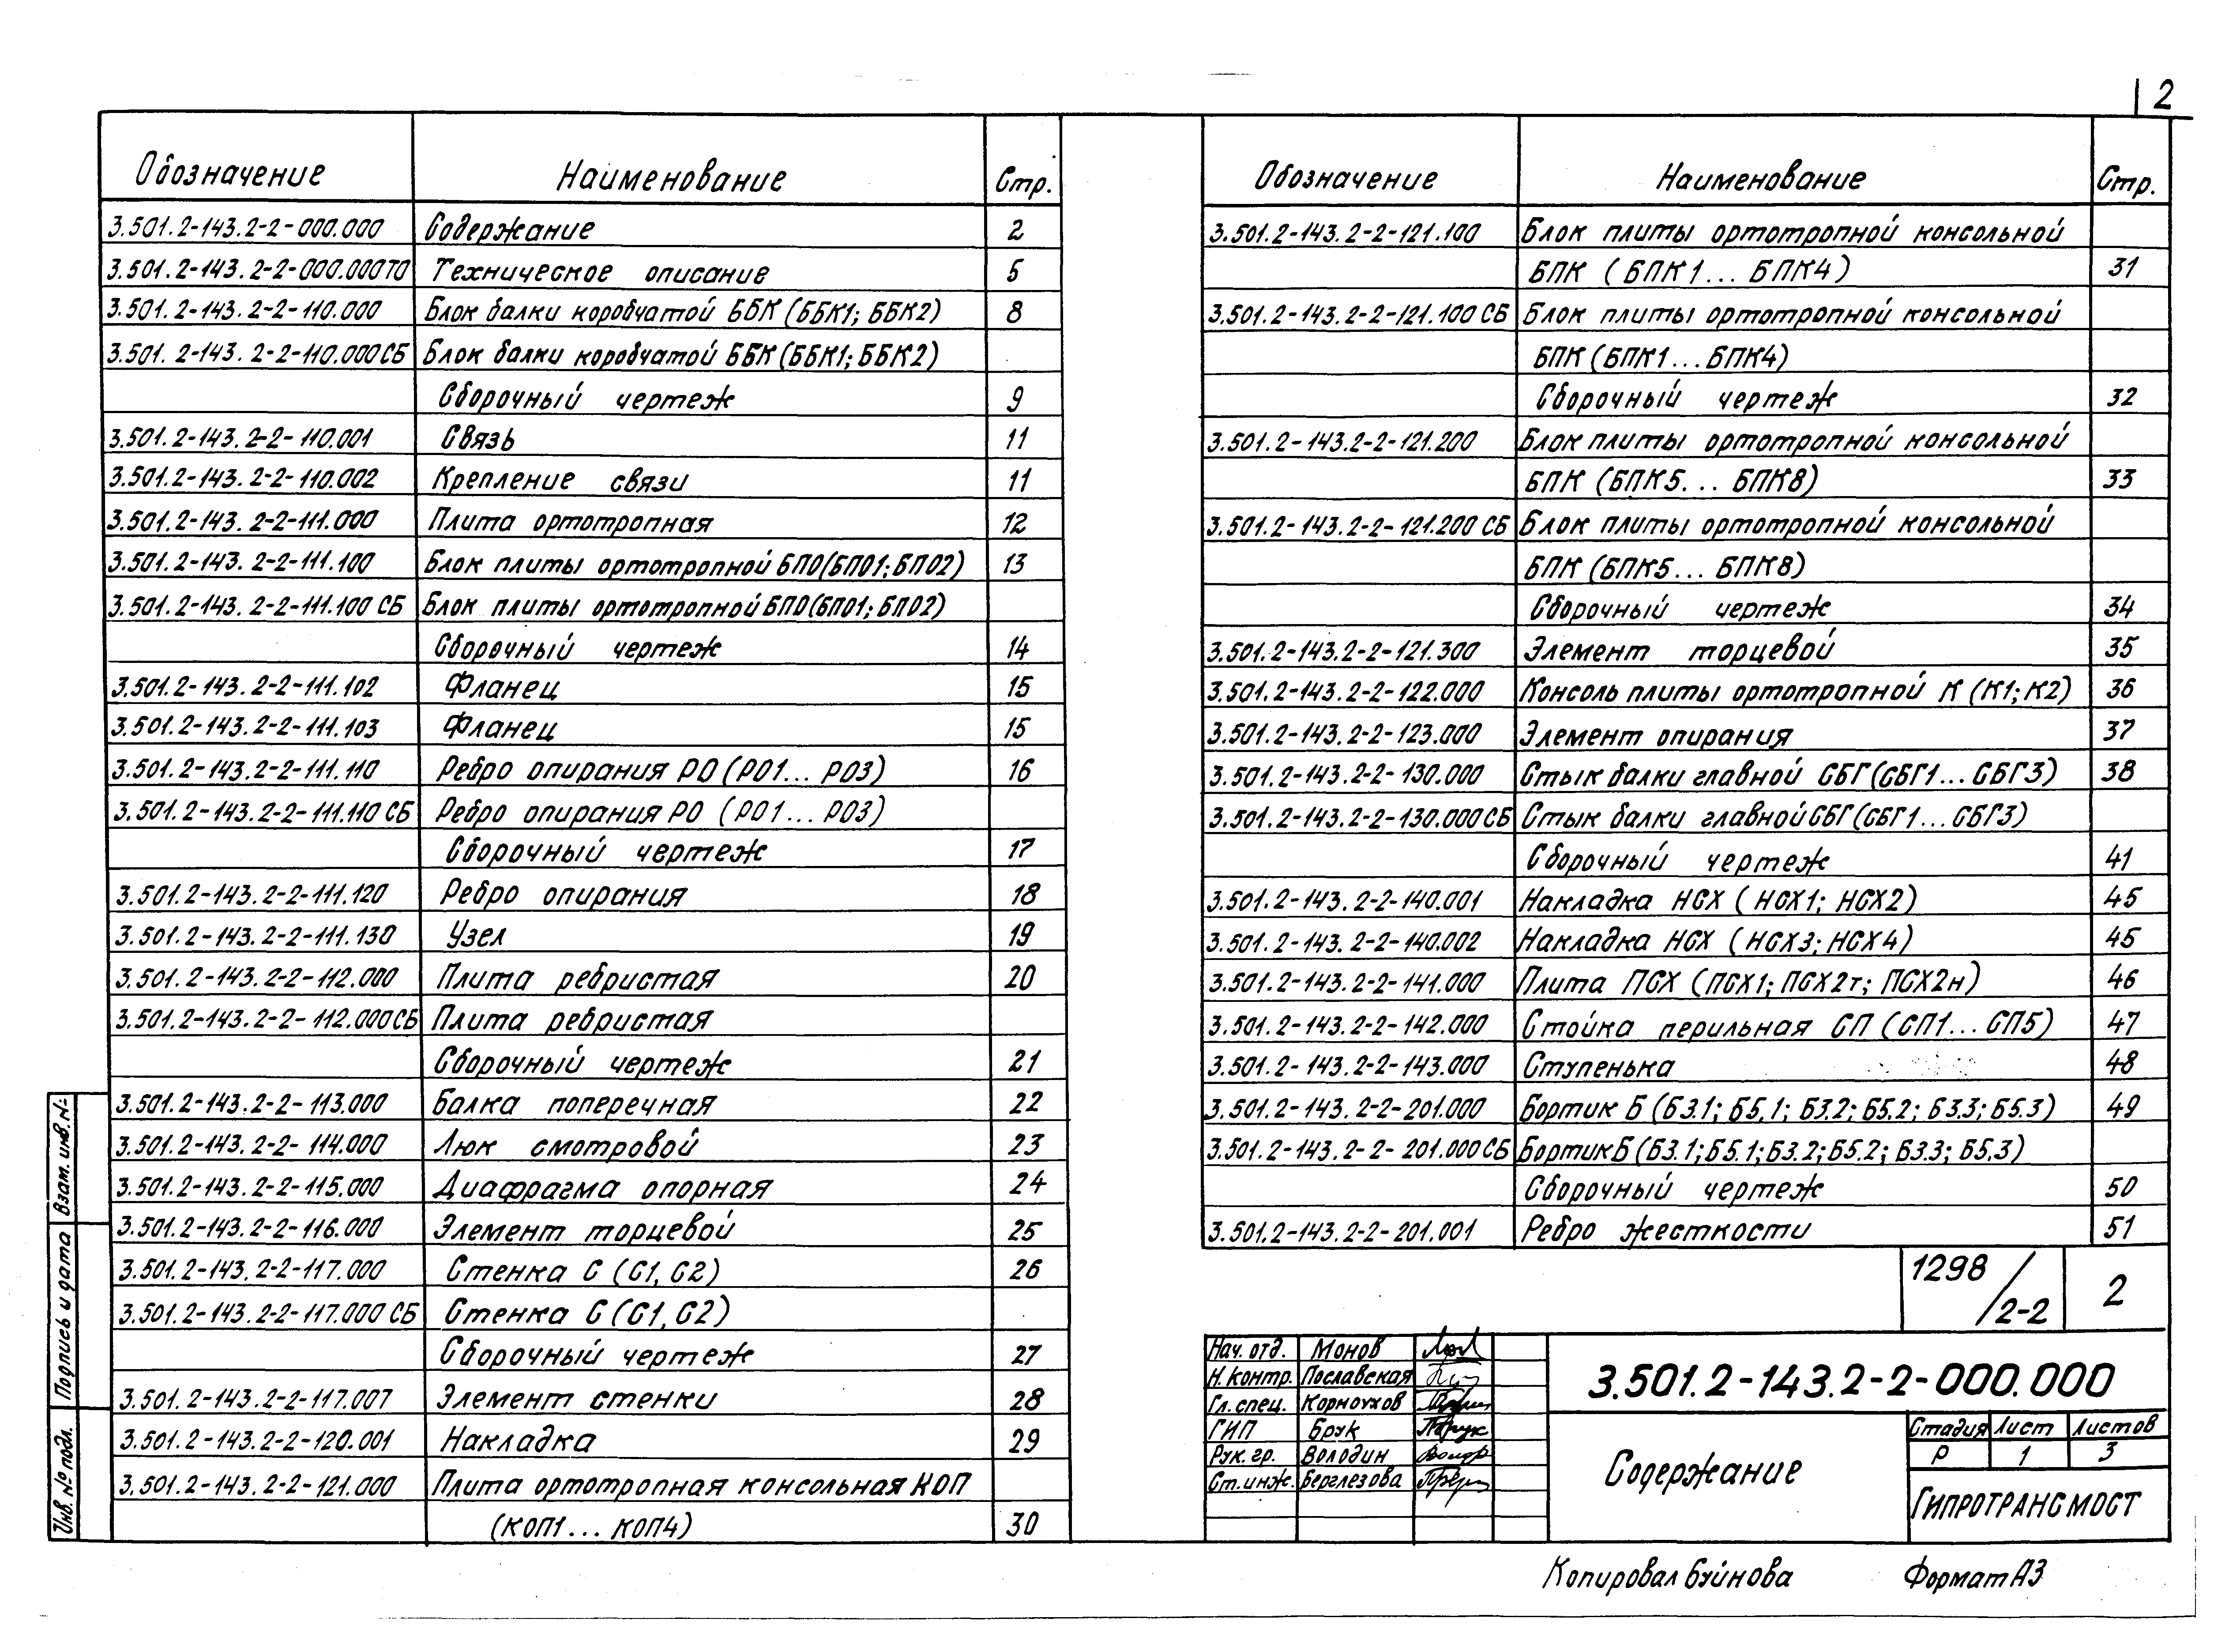 2
Обозначение Наименование Стр.
3.501.2-143.2-2-000.000 Содержание 2
3.501.2-143.2-2-000.000ТО Техническое описание 5
3.501.2-143.2-2-110.000 Блок балки коробчатой ББК (ББК1; ББК2) 8
3.501.2-143.2-2-110.000СБ Блок балки коробчатой ББК (ББК1; ББК2)
Сборочный чертеж 9
3.501.2-143.2-2-110.001 Связь 11
3.501.2-143.2-2-110.002 Крепление связи 11
3.501.2-143.2-2-111.000 Плита ортотропная 12
3.501.2-143.2-2-111.100 Блок плиты ортотропной БПО(БПО1; БПО2) 13
3.501.2-143.2-2-111.100 СБ Блок плиты ортотропной БПО(БПО1; БПО2)
Сборочный чертеж 14
3.501.2-143.2-2-111.102 Фланец 15
3.501.2-143.2-2-111.103 Фланец 15
3.501.2-143.2-2-111.110 Ребро опирания РО (РО1... РО3) 16
3.501.2-143.2-2-111.110 СБ Ребро опирания РО (РО1... РО3)
Сборочный чертеж 17
3.501.2-143.2-2-111.120 Ребро опирания 18
3.501.2-143.2-2-111.130 Узел 19
3.501.2-143.2-2-112.000 Плита ребристая 20
3.501.2-143.2-2-112.000СБ Плита ребристая
Сборочный чертеж 21
3.501.2-143.2-2-113.000 Балка поперечная 22
3.501.2-143.2-2-114.000 Люк смотровой 23
3.501.2-143.2-2-115.000 Диафрагма опорная 24
3.501.2-143.2-2-116.000 Элемент торцевой 25
3.501.2-143.2-2-117.000 Стенка С (С1, С2) 26
3.501.2-143.2-2-117.000 СБ Стенка С (С1, С2)
Сборочный чертеж 27
3.501.2-143.2-2-117.007 Элемент стенки 28
3.501.2-143.2-2-120.001 Накладка 29
3.501.2-143.2-2-121.000 Плита ортотропная консольная КОП
(КОП1... КОП4) 30
Обозначение Наименование Стр.
3.501.2-143.2-2-121.100 Блок плиты ортотропной консольной
БПК (БПК1... БПК4) 31
3.501.2-143.2-2-121.100 СБ Блок плиты ортотропной консольной
БПК (БПК1... БПК4)
Сборочный чертеж 32
3.501.2-143.2-2-121.200 Блок плиты ортотропной консольной
БПК (БПК5... БПК8) 33
3.501.2-143.2-2-121.200 СБ Блок плиты ортотропной консольной
БПК (БПК5... БПК8)
Сборочный чертеж 34
3.501.2-143.2-2-121.300 Элемент торцевой 35
3.501.2-143.2-2-122.000 Консоль плиты ортотропной К (К1; К2) 36
3.501.2-143.2-2-123.000 Элемент опирания 37
3.501.2-143.2-2-130.000 Стык балки главной СБГ (СБГ1... СБГ3) 38
3.501.2-143.2-2-130.000 СБ Стык балки главной СБГ (СБГ1... СБГ3)
Сборочный чертеж 41
3.501.2-143.2-2-140.001 Накладка НСХ (НСХ1; НСХ2) 45
3.501.2-143.2-2-140.002 Накладка НСХ (НСХ3; НСХ4) 45
3.501.2-143.2-2-141.000 Плита ПСХ (ПСХ1; ПСХ2т; ПСХ2н) 46
3.501.2-143.2-2-142.000 Стойка перильная СП (СП1... СП5) 47
3.501.2-143.2-2-143.000 Ступенька 48
3.501.2-143.2-2-201.000 Бортик Б (Б3.1; Б5.1; Б3.2; Б5.2; Б3.3; Б5.3) 49
3.501.2-143.2-2-201.000 СБ Бортик Б (Б3.1; Б5.1; Б3.2; Б5.2; Б3.3; Б5.3)
Сборочный чертеж 50
3.501.2-143.2-2-201.001 Ребро жесткости 51
1298/2-2 2
Нач. отд. Монов
Н. контр. Пославская
Гл. спец. Корноухов
ГИП Брук
Рук. гр. Володин
Ст. инж. Берглезова
3.501.2-143.2-2-000.000
Содержание
Стадия Лист Листов
Р 1 3
ГИПРОТРАНСМОСТ
Взам. инв. №
Подпись и дата
Инв. № подл.
Копировал Буйнова Формат А3